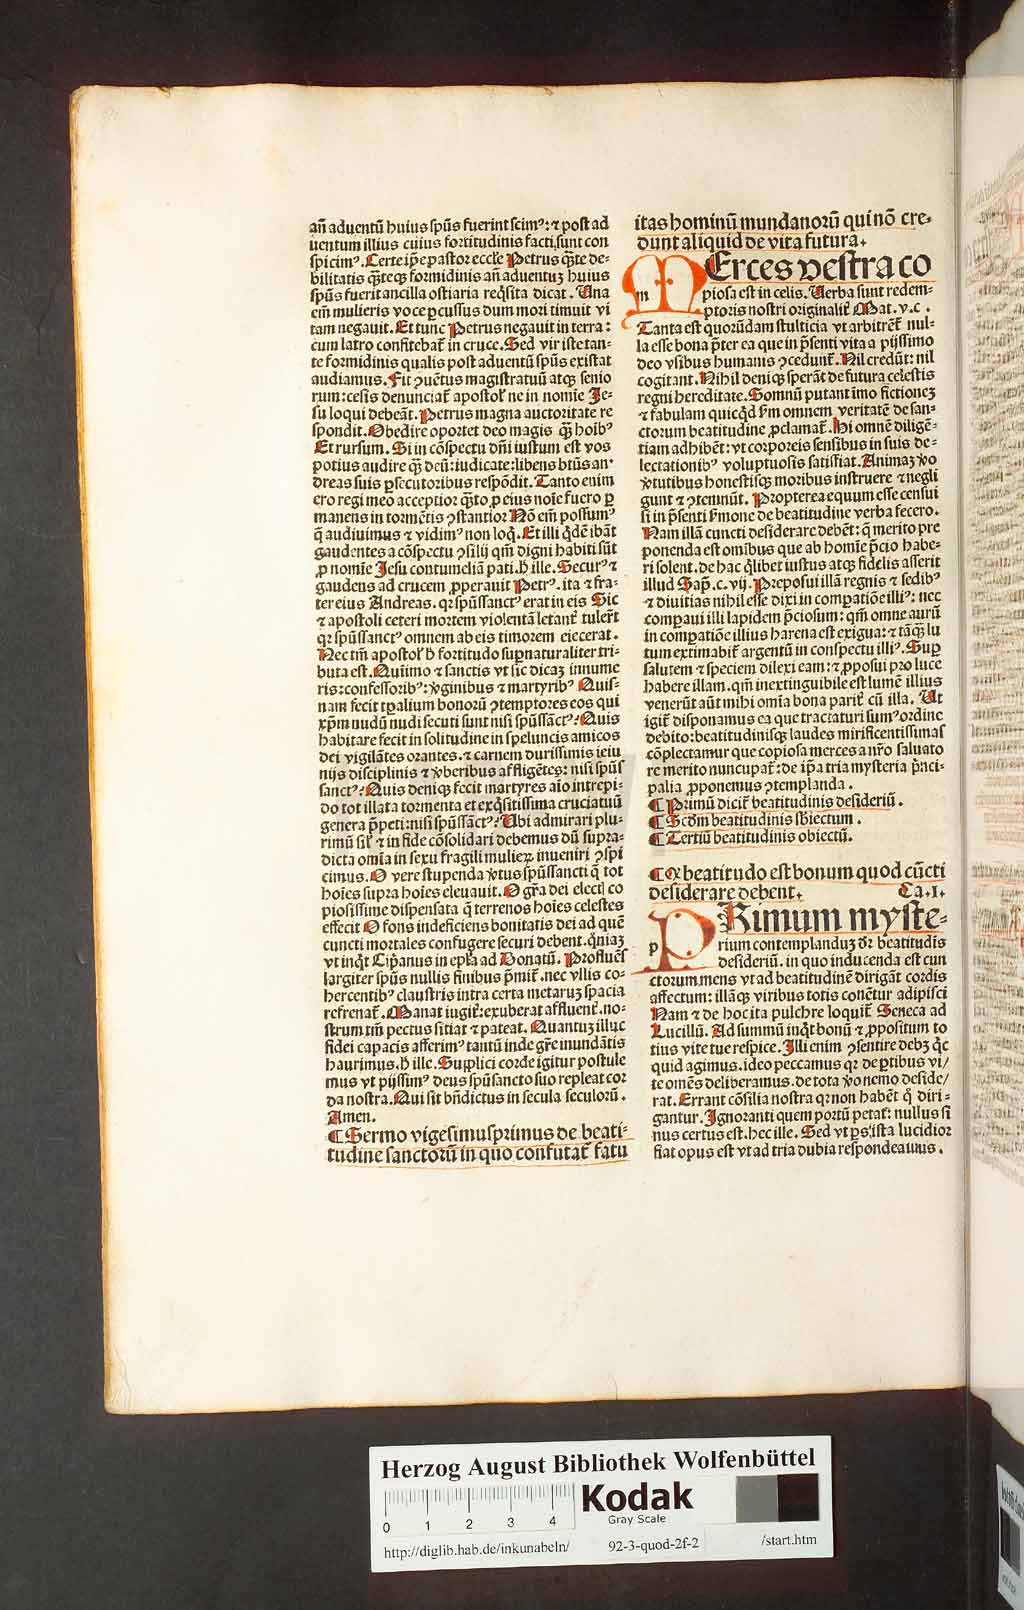 añ aduentũ huius spũs fuerint scimꝰ: ⁊ post ad
uentum illius cuius fortitudinis facti sunt con
spicimꝰ. Certe ip̃e pastor eccl̃ie Petrus q̃te de-
bilitatis q̃teqꝫ formidinis añ aduentuꝫ huius
spũs fuerit ancilla ostiaria req̇sita dicat. Una
em̃ mulieris voce ꝑcussus dum mori timuit vi
tam negauit. Et tunc Petrus negauit in terra:
cum latro confitebat̃ in cruce. Sed vir iste tan-
te formidinis qualis post aduentũ spũs existat
audiamus. Fit ꝯuẽtus magistratuũ atqꝫ senio
rum: cesis denunciat̃ apostol̃ ne in nomĩe Je-
su loqui debeãt. Petrus magna auctoritate re
spondit. Obedire oportet deo magis q̃ꝫ hoĩbꝰ
Et rursum. Si in cõspectu dñi iustum est vos
potius audire q̃ꝫ deũ: iudicate: libens btũs an-
dreas suis ꝑsecutoribus respõdit. Tanto enim
ero regi meo acceptior q̃to ꝓ eius noĩe fuero ꝑ
manens in tormẽtis ꝯstantior Nõ em̃ possumꝰ
q̃ audiuimus ⁊ vidimꝰ non loq̇. Et illi q̇dẽ ibãt
gaudentes a cõspectu ꝯsilij qm̃ digni habiti sũt
ꝓ nomĩe Jesu contumeliã pati. h̃ ille. Securꝰ ⁊
gaudens ad crucem ꝓperauit Petrꝰ. ita ⁊ fra-
ter eius Andreas. qꝛ spũssanctꝰ erat in eis Sic
⁊ apostoli ceteri mortem violentã letanť tulerũt
qꝛ spũssanctꝰ omnem ab eis timorem eiecerat.
Nec tm̃ apostol̃ h̃ fortitudo suꝑnaturaliter tri-
buta est. Quiimo ⁊ sanctis vt sic dicaꝫ innume
ris: confessoribꝰ: ỽginibus ⁊ martyribꝰ Quis-
nam fecit tꝑalium bonorũ ꝯtemptores eos qui
xp̃m nudũ nudi secuti sunt nisi spũssanctꝰ? Quis
habitare fecit in solitudine in speluncis amicos
dei vigilãtes orantes. ⁊ carnem durissimis ieiu
nijs disciplinis ⁊ ỽberibus affligẽtes: nisi spũs
sanctꝰ? Quis denicꝫ fecit martyres aĩo intrepi-
do tot illata tormenta et exq̇sitissima cruciatuũ
genera ꝑpeti: nisi spũssanctꝰ? Ubi admirari plu-
rimũ sil̃ ⁊ in fide cõsolidari debemus dũ supra-
dicta om̃ia in sexu fragili mulieꝝ inueniri ꝯspi
cimus. O vere stupenda ỽtus spũssancti q̃ tot
hoĩes supra hoĩes eleuauit. O gr̃a dei electi co
piosissime dispensata q̃ terrenos hoĩes celestes
effecit O fons indeficiens bonitatis dei ad quẽ
cuncti mortales confugere securi debent. q̃niaꝫ
vt inq̇t Cip̃anus in epl̃a ad Donatũ. Profluẽs
largiter spũs nullis finibus p̃mit̃. nec vllis co-
hercentibꝰ claustris intra certa metaruꝫ spacia
refrenat̃. Manat iugiť: exuberat affluenť. no-
strum tm̃ pectus sitiat ⁊ pateat. Quantuꝫ illuc
fidei capacis afferimꝰ tantũ inde gr̃e inundãtis
haurimus. h̃ ille. Supplici corde igitur postule
mus vt pijssimꝰ deus spũsancto suo repleat cor
da nostra. Qui sit bñdictus in secula seculorũ.
Amen.
¶ Sermo vigesimusprimus de beati-
tudine sanctorũ in quo confutat̃ fatu
itas hominũ mundanorũ qui nõ cre-
dunt aliquid de vita futura.
MErces vestra co
piosa est in celis. Verba sunt redem-
ptoris nostri originaliť Mat. v. c.
Tanta est quorũdam stulticia vt arbitrẽt̃ nul-
la esse bona p̃ter ea que in p̃senti vita a pijssimo
deo vsibus humanis ꝯcedunt̃. Nil credũt: nil
cogitant. Nihil deniqꝫ sperãt de futura celestis
regni hereditate. Somnũ putant imo fictioneꝫ
⁊ fabulam quicq̇d ẜm omnem veritatẽ de san-
ctorum beatitudine ꝓclamat̃. Hi omnẽ diligẽ-
tiam adhibẽt: vt corporeis sensibus in suis de-
lectationibꝰ voluptuosis satisfiat. Animaꝫ ỽo
ỽtutibus honestisqꝫ moribus instruere ⁊ negli
gunt ⁊ ꝯtemnũt. Propterea equum esse censui
si in p̃senti ẜmone de beatitudine verba fecero.
Nam illã cuncti desiderare debẽt: q̃ merito pre
ponenda est omĩbus que ab homĩe p̃cio habe-
ri solent. de hac q̇libet iustus atqꝫ fidelis asserit
illud Sap̃. c. vij. Preposui illã regnis ⁊ sedibꝰ
⁊ diuitias nihil esse dixi in comꝑatiõe illiꝰ: nec
comꝑaui illi lapidem p̃ciosum: qm̃ omne aurũ
in comꝑatiõe illius harena est exigua: ⁊ tãq̃ꝫ lu
tum extimabit̃ argentũ in conspectu illiꝰ. Suꝑ
salutem ⁊ speciem dilexi eam: ⁊ ꝓposui pro luce
habere illam. qm̃ inextinguibile est lumẽ illius
venerũt aũt mihi om̃ia bona pariť cũ illa. Ut
igiť disponamus ea que tractaturi sumꝰ ordine
debito: beatitudinisqꝫ laudes mirificentissimas
cõplectamur que copiosa merces a nr̃o saluato
re merito nuncupat̃: de ip̃a tria mysteria p̃nci-
palia ꝓponemus ꝯtemplanda.
¶ Primũ dicit̃ beatitudinis desideriũ.
¶ Scd̃m beatitudinis sb̃iectum.
¶ Tertiũ beatitudinis obiectũ.
¶ Qꝙ beatitudo est bonum quod cũcti
desiderare debent. Ca. I.
PRimum myste-
rium contemplanduꝫ dr̃ beatitudis
desideriũ. in quo inducenda est cun
ctorum mens vt ad beatitudinẽ dirigãt cordis
affectum: illãqꝫ viribus totis conẽtur adipisci
Nam ⁊ de hoc ita pulchre loquit̃ Seneca ad
Lucillũ. Ad summũ inq̇t bonũ ⁊ ꝓpositum to
tius vite tue respice. Illi enim ꝯsentire debꝫ q̇c
quid agimus. ideo peccamus qꝛ de ꝑtibus vi/
te omẽs deliberamus. de tota ỽo nemo deside/
rat. Errant cõsilia nostra qꝛ non habẽt q̊ diri-
gantur. Ignoranti quem portũ petat: nullus si
nus certus est. hec ille. Sed vt ꝑs ista lucidior
fiat opus est vt ad tria dubia respondeamus.
m
p
Herzog August Bibliothek Wolfenbüttel
0 1 2 3 4
Kodak
Gray Scale
http://diglib.hab.de/inkunabeln/ 92-3-quod-2f-2 /start.htm